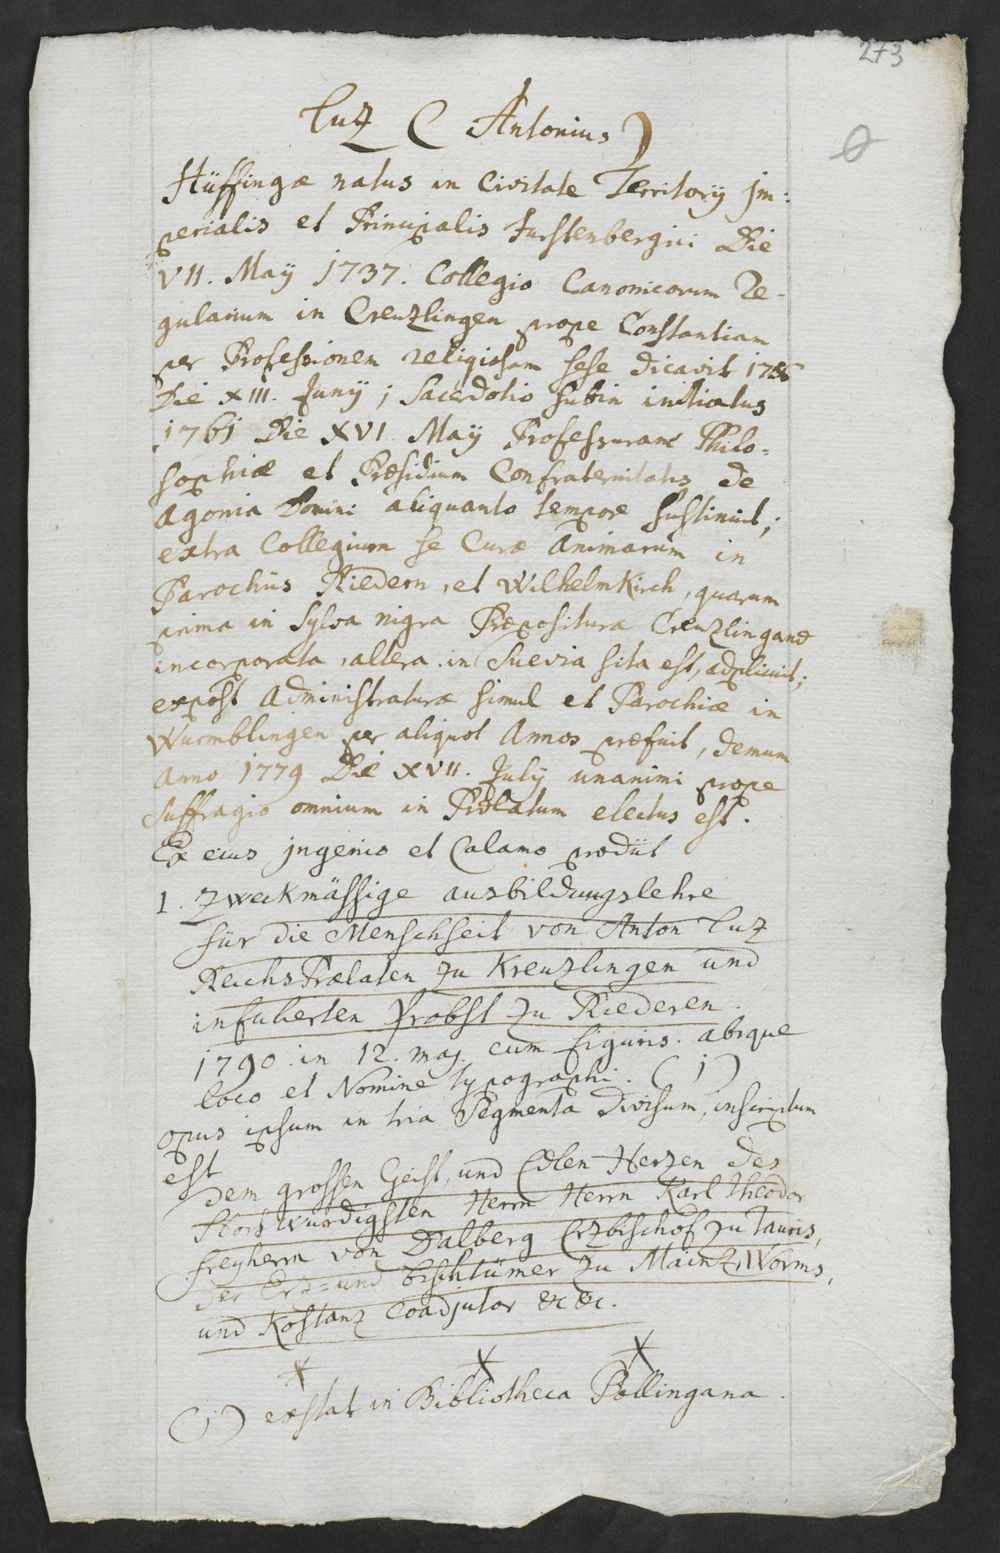 273
Luz (Antonius)
Hüffingæ natus in Civitate Territorÿ Jm:
perialis et Principalis Furstenbergici Die
VII. Maÿ 1737. Collegio Canonicorum Re-
gularium in Creuzlingen prope Constantiam
per Professionem religiosam sese dicavit
Die XIII. Junÿ; Sacerdotio subin initiatus
1761 Die XVI. Maÿ Professuram Philo-
sophiæ et Præsidium Confraternitatis de
Agonia Domini aliquanto tempore sustinuit;
extra Collegium se Curæ Animarum in
Parochiis Riedern, et Wilhelmkirch, quarum
prima in Sylva nigra Præpositura Creuzlingane
incorporata, altera in Suevia sita est, adplicuit;
expost Administraturæ simul et Parochiæ in
Wurmblingen per aliquot Annos præfuit, demum
Anno 1779 Die XVII. Julÿ unanimi prope
suffragio omnium in Prælatum electus est.
Ex eius jngenio et Calamo prodiit
1. Zweckmässige ausbildungslehre
für die Menschheit von Anton Luz
ReichsPrælaten zu Kreuzlingen und
infulierten Probst zu Riederen
1790. in 12. maj. cum figuris. absque
loco et Nomine typographi. (1)
opus ipsum in tria Segmenta divisum, inscriptum
est
dem grossen Geist, und Edlen Herzen des
Hochwürdigsten Herrn Herrn Karl Theodor
freyherrn von Dalberg Erzbischof zu Tauris,
der Erz= und bischtümer zu Mainz, Worms,
und Kostanz Coadjutor &c &c.
(1) exstat in Bibliotheca Pollingana.